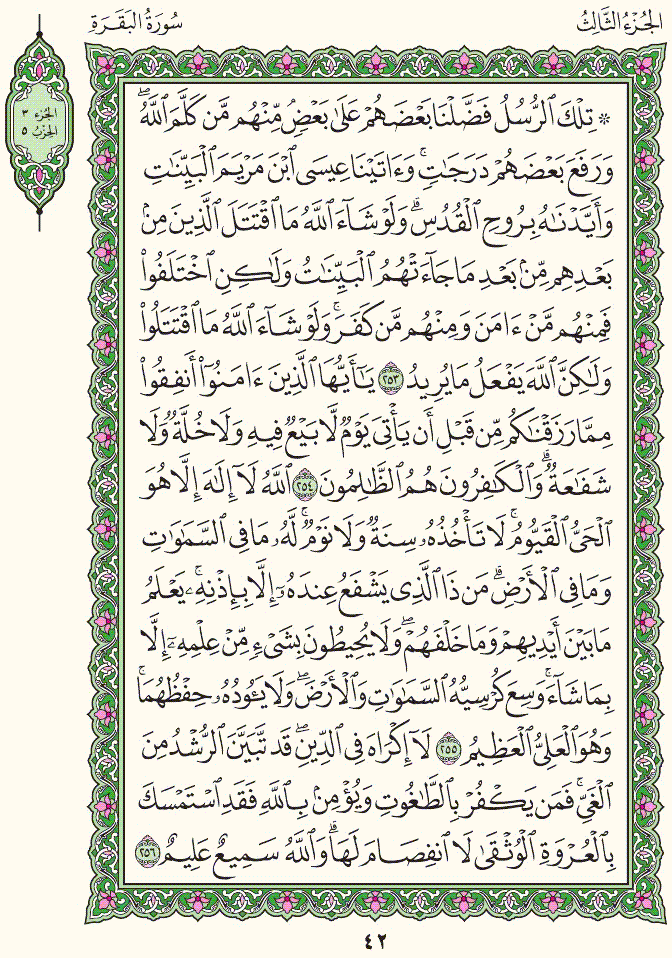 الجُزْءُ الثَّالِثُ
سُورَةُ البَقَرَةِ
الجزء ٣
الحزب ٥
۞ تِلْكَ ٱلرُّسُلُ فَضَّلْنَا بَعْضَهُمْ عَلَىٰ بَعْضٍۘ مِّنْهُم مَّن كَلَّمَ ٱللَّهُۖ
وَرَفَعَ بَعْضَهُمْ دَرَجَـٰتٍۚ وَءَاتَيْنَا عِيسَى ٱبْنَ مَرْيَمَ ٱلْبَيِّنَـٰتِ
وَأَيَّدْنَـٰهُ بِرُوحِ ٱلْقُدُسِۗ وَلَوْ شَآءَ ٱللَّهُ مَا ٱقْتَتَلَ ٱلَّذِينَ مِنۢ
بَعْدِهِم مِّنۢ بَعْدِ مَا جَآءَتْهُمُ ٱلْبَيِّنَـٰتُ وَلَـٰكِنِ ٱخْتَلَفُوا۟
فَمِنْهُم مَّنْ ءَامَنَ وَمِنْهُم مَّن كَفَرَۚ وَلَوْ شَآءَ ٱللَّهُ مَا ٱقْتَتَلُوا۟
وَلَـٰكِنَّ ٱللَّهَ يَفْعَلُ مَا يُرِيدُ ٢٥٣ يَـٰٓأَيُّهَا ٱلَّذِينَ ءَامَنُوٓا۟ أَنفِقُوا۟
مِمَّا رَزَقْنَـٰكُم مِّن قَبْلِ أَن يَأْتِىَ يَوْمٌ لَّا بَيْعٌ فِيهِ وَلَا خُلَّةٌ وَلَا
شَفَـٰعَةٌۗ وَٱلْكَـٰفِرُونَ هُمُ ٱلظَّـٰلِمُونَ ٢٥٤ ٱللَّهُ لَآ إِلَـٰهَ إِلَّا هُوَ
ٱلْحَىُّ ٱلْقَيُّومُۚ لَا تَأْخُذُهُۥ سِنَةٌ وَلَا نَوْمٌۚ لَّهُۥ مَا فِى ٱلسَّمَـٰوَٰتِ
وَمَا فِى ٱلْأَرْضِۗ مَن ذَا ٱلَّذِى يَشْفَعُ عِندَهُۥٓ إِلَّا بِإِذْنِهِۦۚ يَعْلَمُ
مَا بَيْنَ أَيْدِيهِمْ وَمَا خَلْفَهُمْۖ وَلَا يُحِيطُونَ بِشَىْءٍ مِّنْ عِلْمِهِۦٓ إِلَّا
بِمَا شَآءَۚ وَسِعَ كُرْسِيُّهُ ٱلسَّمَـٰوَٰتِ وَٱلْأَرْضَۖ وَلَا يَـُٔودُهُۥ حِفْظُهُمَاۚ
وَهُوَ ٱلْعَلِىُّ ٱلْعَظِيمُ ٢٥٥ لَآ إِكْرَاهَ فِى ٱلدِّينِۖ قَد تَّبَيَّنَ ٱلرُّشْدُ مِنَ
ٱلْغَىِّۚ فَمَن يَكْفُرْ بِٱلطَّـٰغُوتِ وَيُؤْمِنۢ بِٱللَّهِ فَقَدِ ٱسْتَمْسَكَ
بِٱلْعُرْوَةِ ٱلْوُثْقَىٰ لَا ٱنفِصَامَ لَهَاۗ وَٱللَّهُ سَمِيعٌ عَلِيمٌ ٢٥٦
٤٢